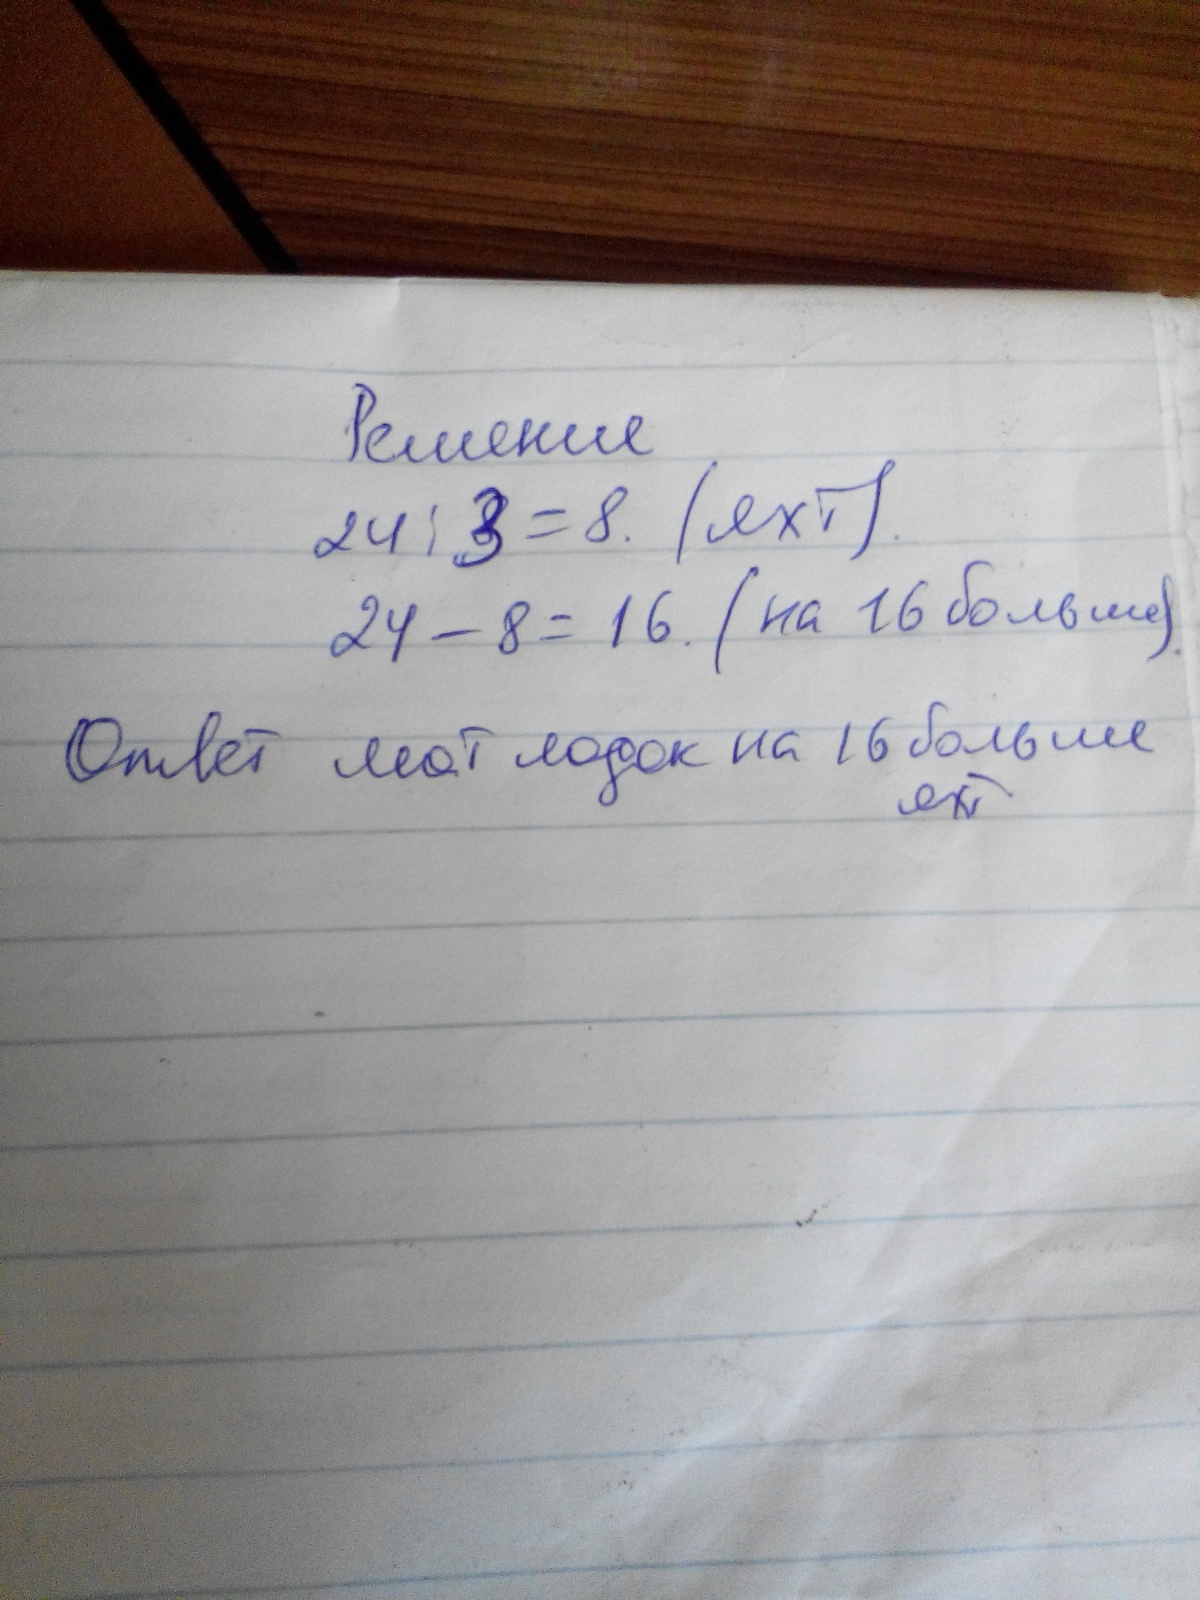 Решение
24 : 3 = 8. (яхт).
24 - 8 = 16. (на 16 больше).
Ответ мот лодок на 16 больше
яхт